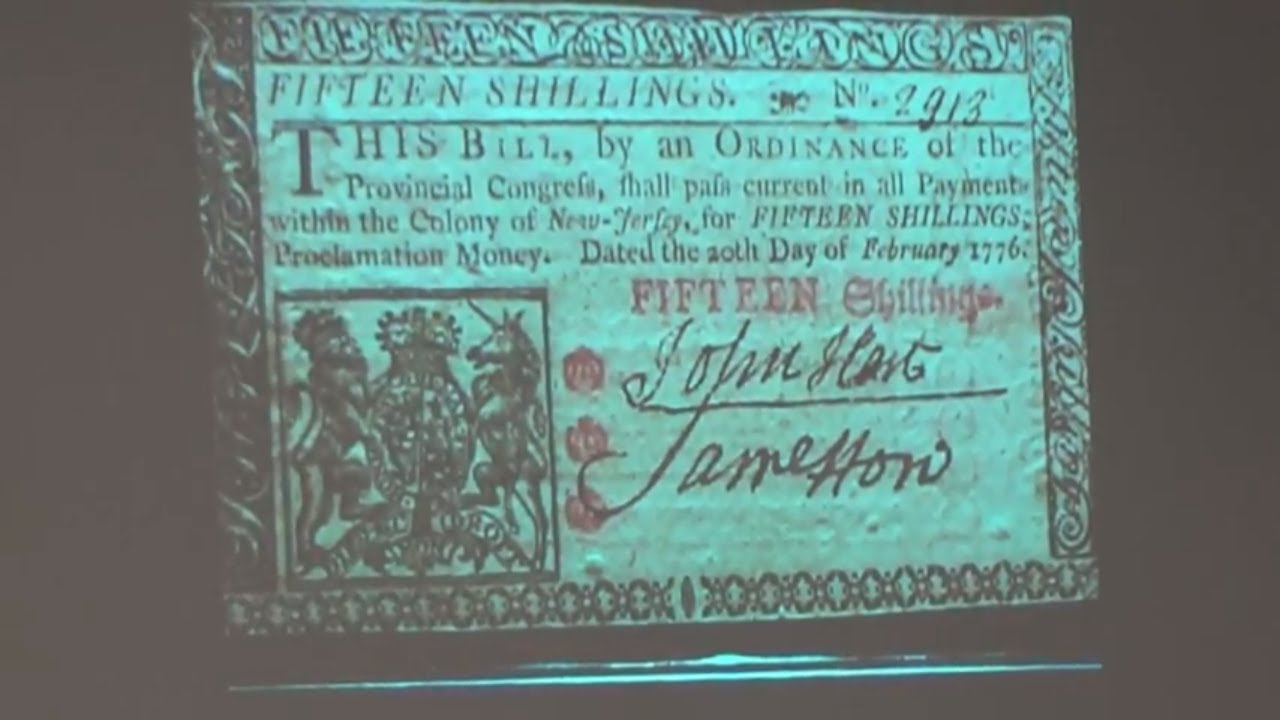 FIFTEEN SHILLINGS.
FIFTEEN SHILLINGS. No. 2913
THIS BILL, by an ORDINANCE of the
Provincial Congreſs, ſhall paſs current in all Payments
within the Colony of New-Jerſey, for FIFTEEN SHILLINGS,
Proclamation Money. Dated the 20th Day of February 1776.
FIFTEEN Shillings.
John Hart